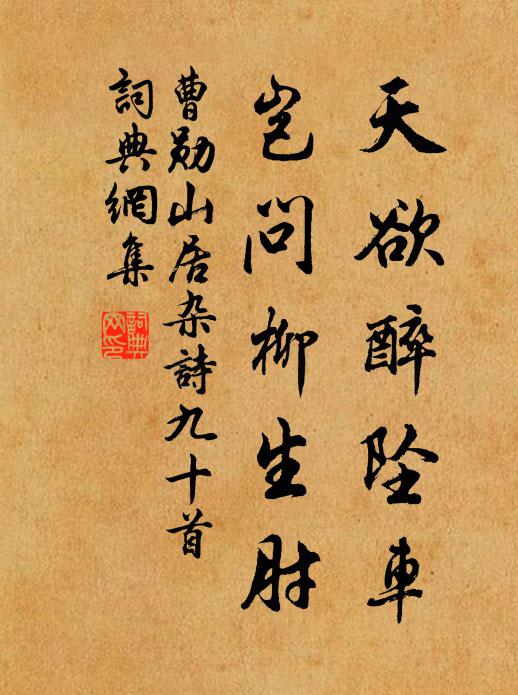 天欲醉坠車
岂問柳生肘
曹勋山居杂詩九十首
詞典網集
詞典網印